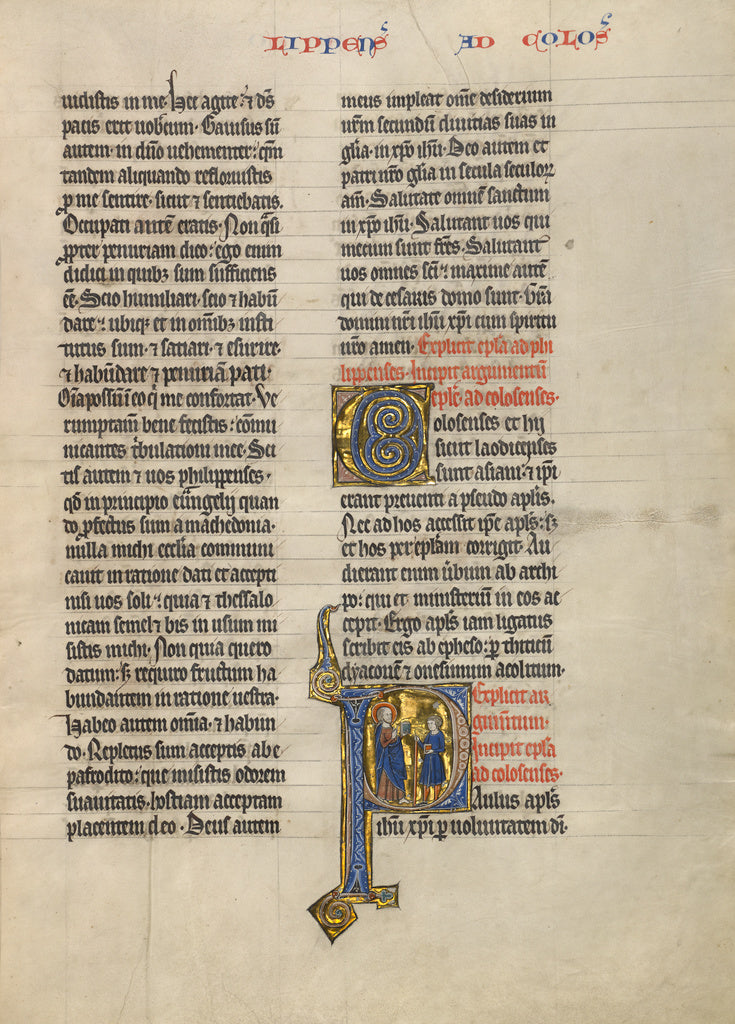 LIPPENS AD COLOS
uidistis in me. Hec agite. ⁊ ds̄
pacis erit uobcum. Gauisus sū
autem in dn̄o uehementer: qm̄
tandem aliquando refloruistis
ꝓ me sentire. sicut ⁊ sentiebatis.
Occupati autē eratis. Non qͣsi
ꝓpter penuriam dico: ego enim
didici in quibꝫ sum sufficiens
eē. Scio humiliari. scio ⁊ habū
dare: ubiqꝫ et in om̄ibꝫ insti
tutus sum. ⁊ satiari. ⁊ esurire.
⁊ habūdare ⁊ penuriā pati.
Om̄ia possū ī eo qͥ me confortat. Ve
rumptam̄ bene fecistis: cōmu
nicantes tͥbulationi mee. Sci
tis autem ⁊ uos philippenses.
qd̄ in principio euͣngelij quan
do ꝓfectus sum a machedonia.
nulla michi ecclīa communi
cauit in ratione dati et accepti
nisi uos soli: quia ⁊ thessalo
nicam semel ⁊ bis in usum mi
sistis michi. Non quia quero
datum: sꝫ requiro fructum ha
bundantem in ratione uestra.
Habeo autem omīa. ⁊ habun
do. Repletus sum acceptis ab e
pafrodito: que misistis odorem
suauitatis. hostiam acceptam
placentem deo. Deus autem
meus impleat om̄e desiderium
ur̄m secundū diuitias suas in
glīa. in xp̄o ih̄u. Deo autem et
patri nr̄o glīa in secula seculoꝝ
am̄. Salutate omnem sanctum
in xp̄o ih̄u. Salutant uos qui
mecum sunt fr̄es. Salutant
uos omnes sc̄i: maxime autē
qui de cesaris domo sunt. Gr̄a
domini nr̄i ih̄u xp̄i cum spiritu
ur̄o amen. Explicit epl̄a ad phi
lippenses. Incipit argumentū
epl̄e ad colosenses.
Colosenses et hij
sicut laodicenses
sunt asiani. ⁊ ip̄i
erant preuenti a pseudo apl̄is.
Nec ad hos accessit ip̄e apl̄s: sꝫ
et hos per epl̄am corrigit. Au
dierant enim ūbum ab archi
po: qui et ministeriū in eos ac
cepit. Ergo apl̄s iam ligatus
scribit eis ab epheso: ꝑ thiticū
dyaconē ⁊ onesimum acolitum.
Explicit ar
gumētum.
Incipit epl̄a
ad colosenses.
PAulus apl̄s
ih̄u xp̄i ꝑ uoluntatem dī.